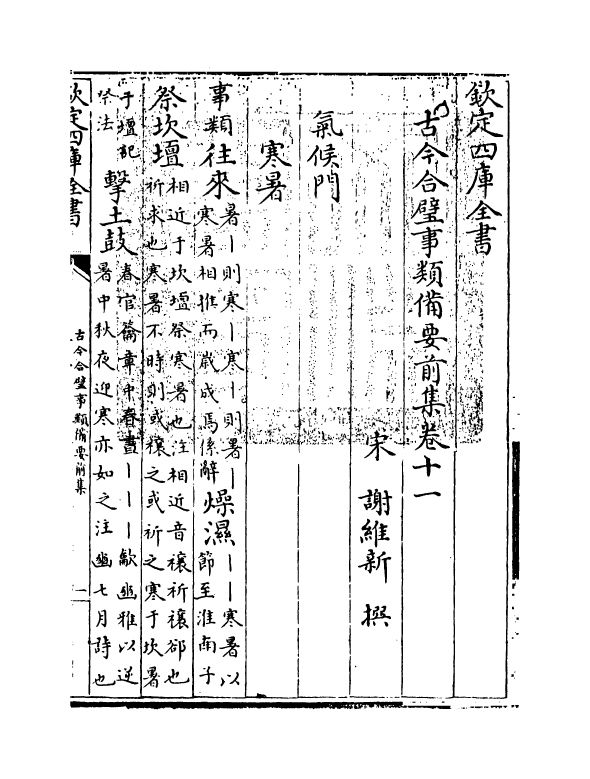 欽定四庫全書
古今合璧事類備要前集卷十一
宋 謝維新 撰
氣候門
寒暑
事類 往來 暑丨則寒丨寒丨則暑丨
寒暑相推而歲成焉係辭
燥濕 丨丨寒暑以
節至淮南子
祭坎壇 相近于坎壇祭寒暑也注相近音禳祈禳郤也
祈求也寒暑不時則或禳之或祈之寒于坎暑
于壇記
祭法
擊土鼓 春官籥章中春晝丨丨丨龡豳雅以逆
暑中秋夜迎寒亦如之注豳七月詩也
欽定四庫全書
古今合璧事類備要前集
一